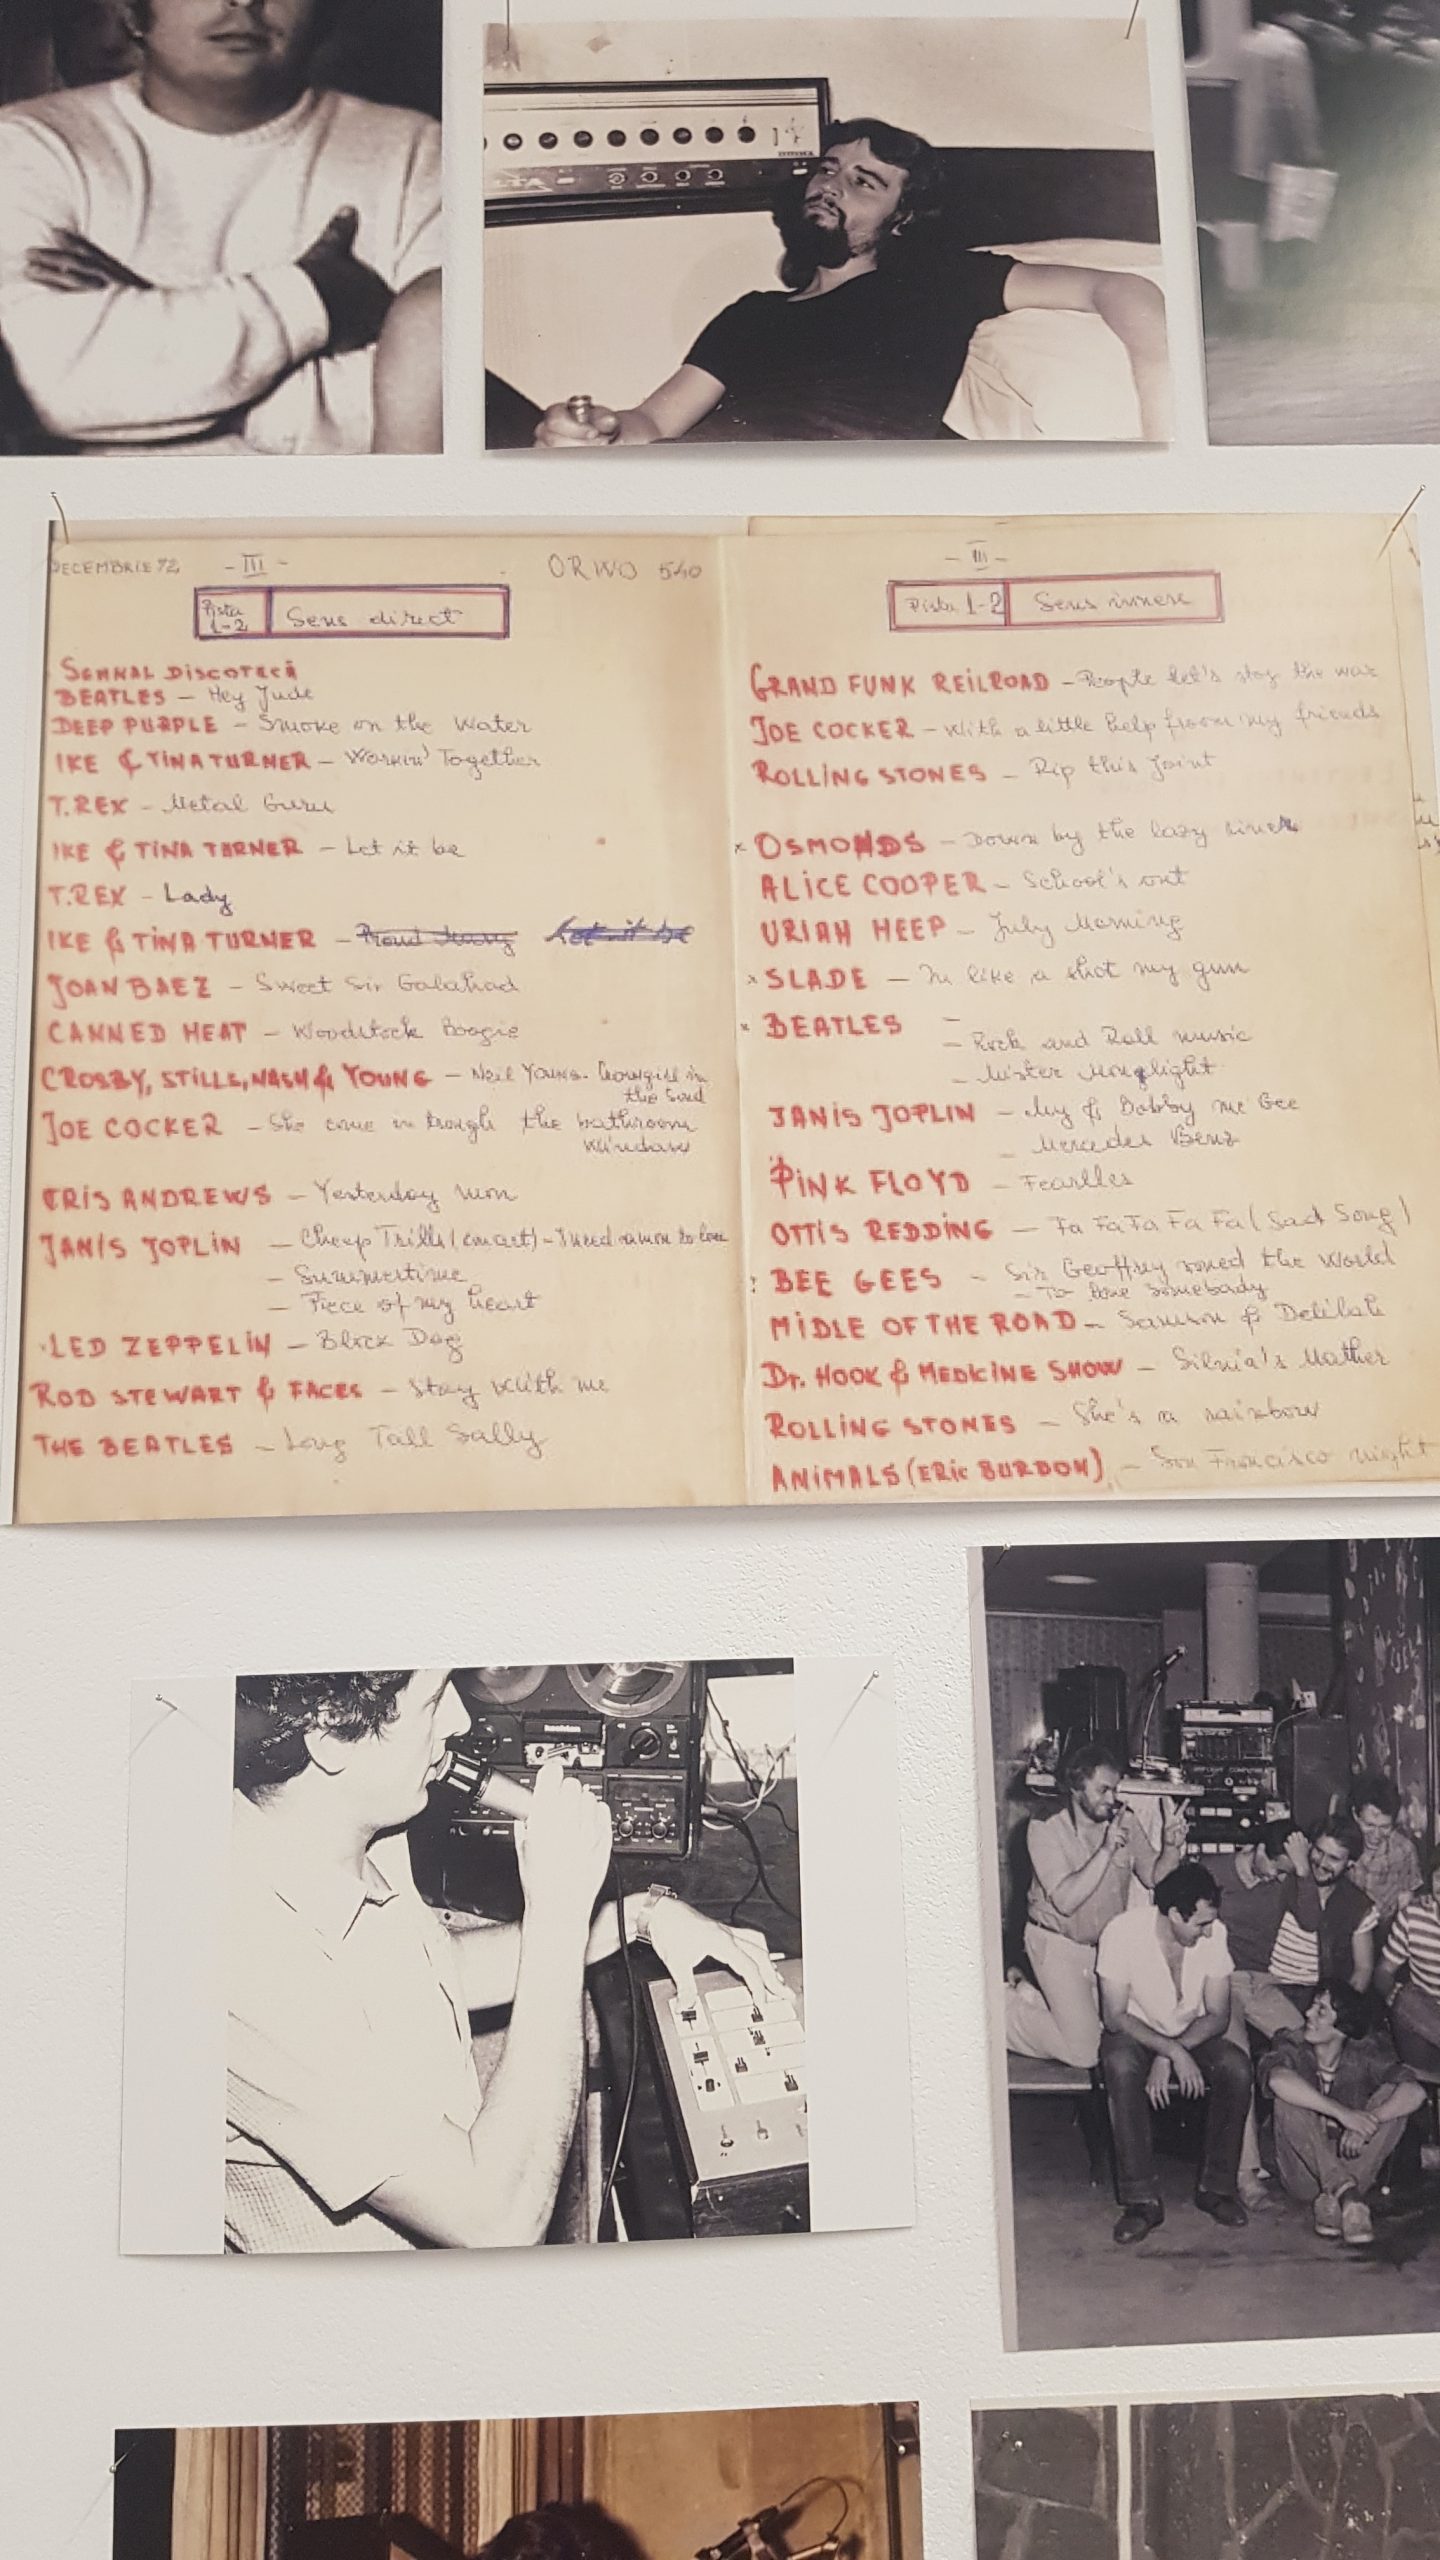 DECEMBRIE 72 - III - ORWO 540
Pista 1-2 Sens direct
SEMNAL DISCOTECĂ
BEATLES - Hey Jude
DEEP PURPLE - Smoke on the Water
IKE & TINA TURNER - Workin' Together
T.REX - Metal Guru
IKE & TINA TURNER - Let it be
T.REX - Lady
IKE & TINA TURNER - Proud Let it be
JOAN BAEZ - Sweet Sir Galahad
CANNED HEAT - Woodstock Boogie
CROSBY, STILLS, NASH & YOUNG - Neil Young - Cowgirl in
the Sand
JOE COCKER - She come in trough the bathroom
window
CRIS ANDREWS - Yesterday man
JANIS JOPLIN - Cheap Trills - I need a man to love
- Summertime
- Piece of my heart
LED ZEPPELIN - Black Dog
ROD STEWART & FACES - Stay With me
THE BEATLES - Long Tall Sally
- III -
Pista 1-2 Sens invers
GRAND FUNK REILROAD - People let's stop the war
JOE COCKER - With a little help from my friends
ROLLING STONES - Rip this Joint
x OSMONDS - Down by the lazy river
ALICE COOPER - School's out
URIAH HEEP - July Morning
x SLADE - In like a shot my gun
x BEATLES -
- Rock and Roll music
- Mister Moonlight
JANIS JOPLIN - My & Bobby mc Gee
- Mercedes Benz
PINK FLOYD - Fearlles
OTTIS REDDING - Fa Fa Fa Fa Fa (Sad Song)
BEE GEES - Sir Geoffrey soned the World
- To love somebody
MIDLE OF THE ROAD - Samson & Delilah
Dr. HOOK & MEDICINE SHOW - Silvia's Mather
ROLLING STONES - She's a rainbow
ANIMALS (ERic BURDON) - San Francisco night